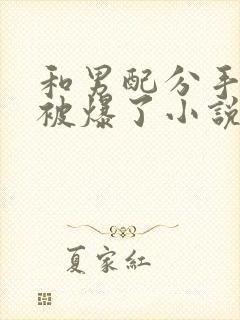 和男配分手
被爆了小說
夏家紅